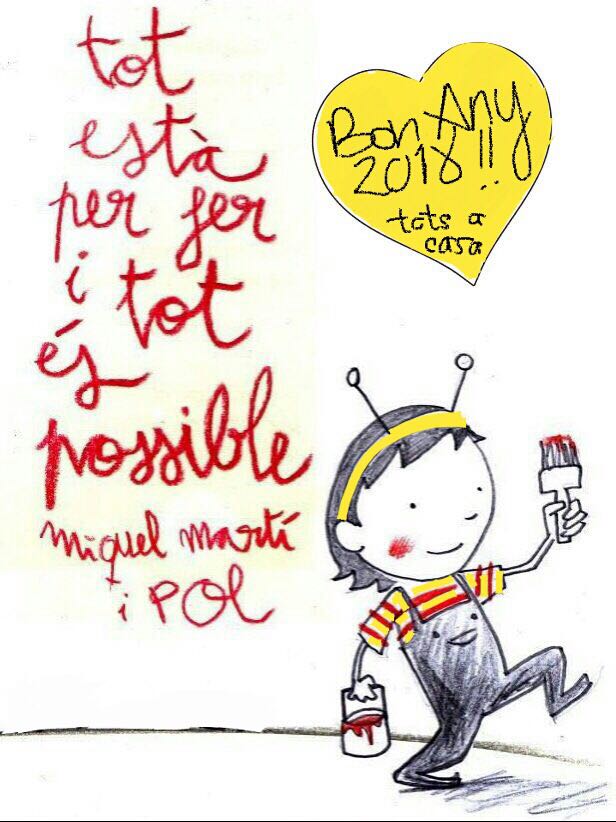 tot
està
per fer
i tot
és
possible
miquel martí
i POL
Bon Any
2018!!
tots a
casa